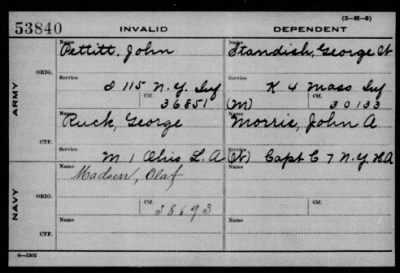 (3-26-8)
53840 INVALID DEPENDENT
Name Name
Pettitt, John Standish, George W
ARMY ORIG. Service Service
D 115 N.Y. Inf K 4 Mass Inf
Ctf. Ctf.
36851 (M) 30133
Name Name
Ruck, George Morris, John A
CTF. Service Service
M 1 Ohio L. A (W) Capt C 7 N.Y. H A
Name Name
Madsen, Olaf
NAVY ORIG. Service Service
Ctf. Ctf.
38693
Name Name
CTF. Service Service